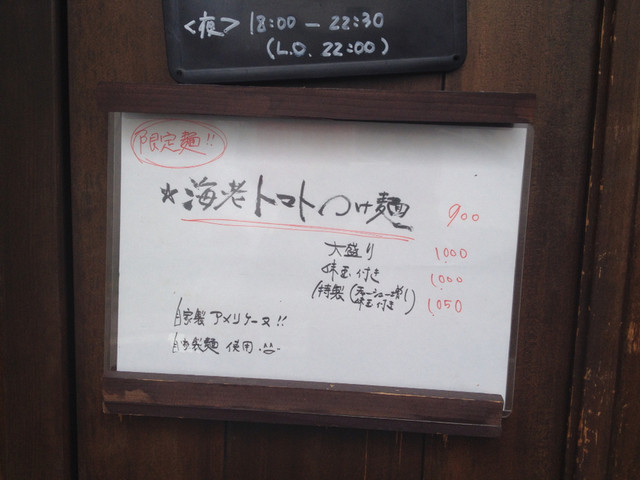 <夜> 18:00 – 22:30
(L.O. 22:00)
限定麺!!
☆海老トマトつけ麺 900
大盛り 1,000
味玉付き 1,000
特製(チャーシュー増し 味玉付き) 1,050
自家製アメリケーヌ!!
自家製麺 使用 ^^